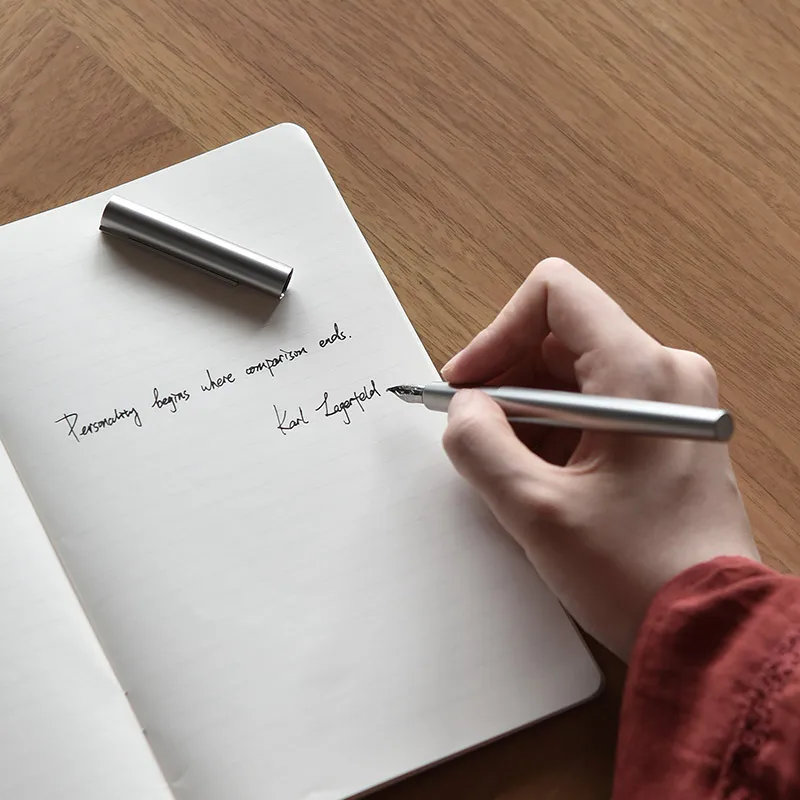 Personality begins where comparison ends.
Karl Lagerfeld